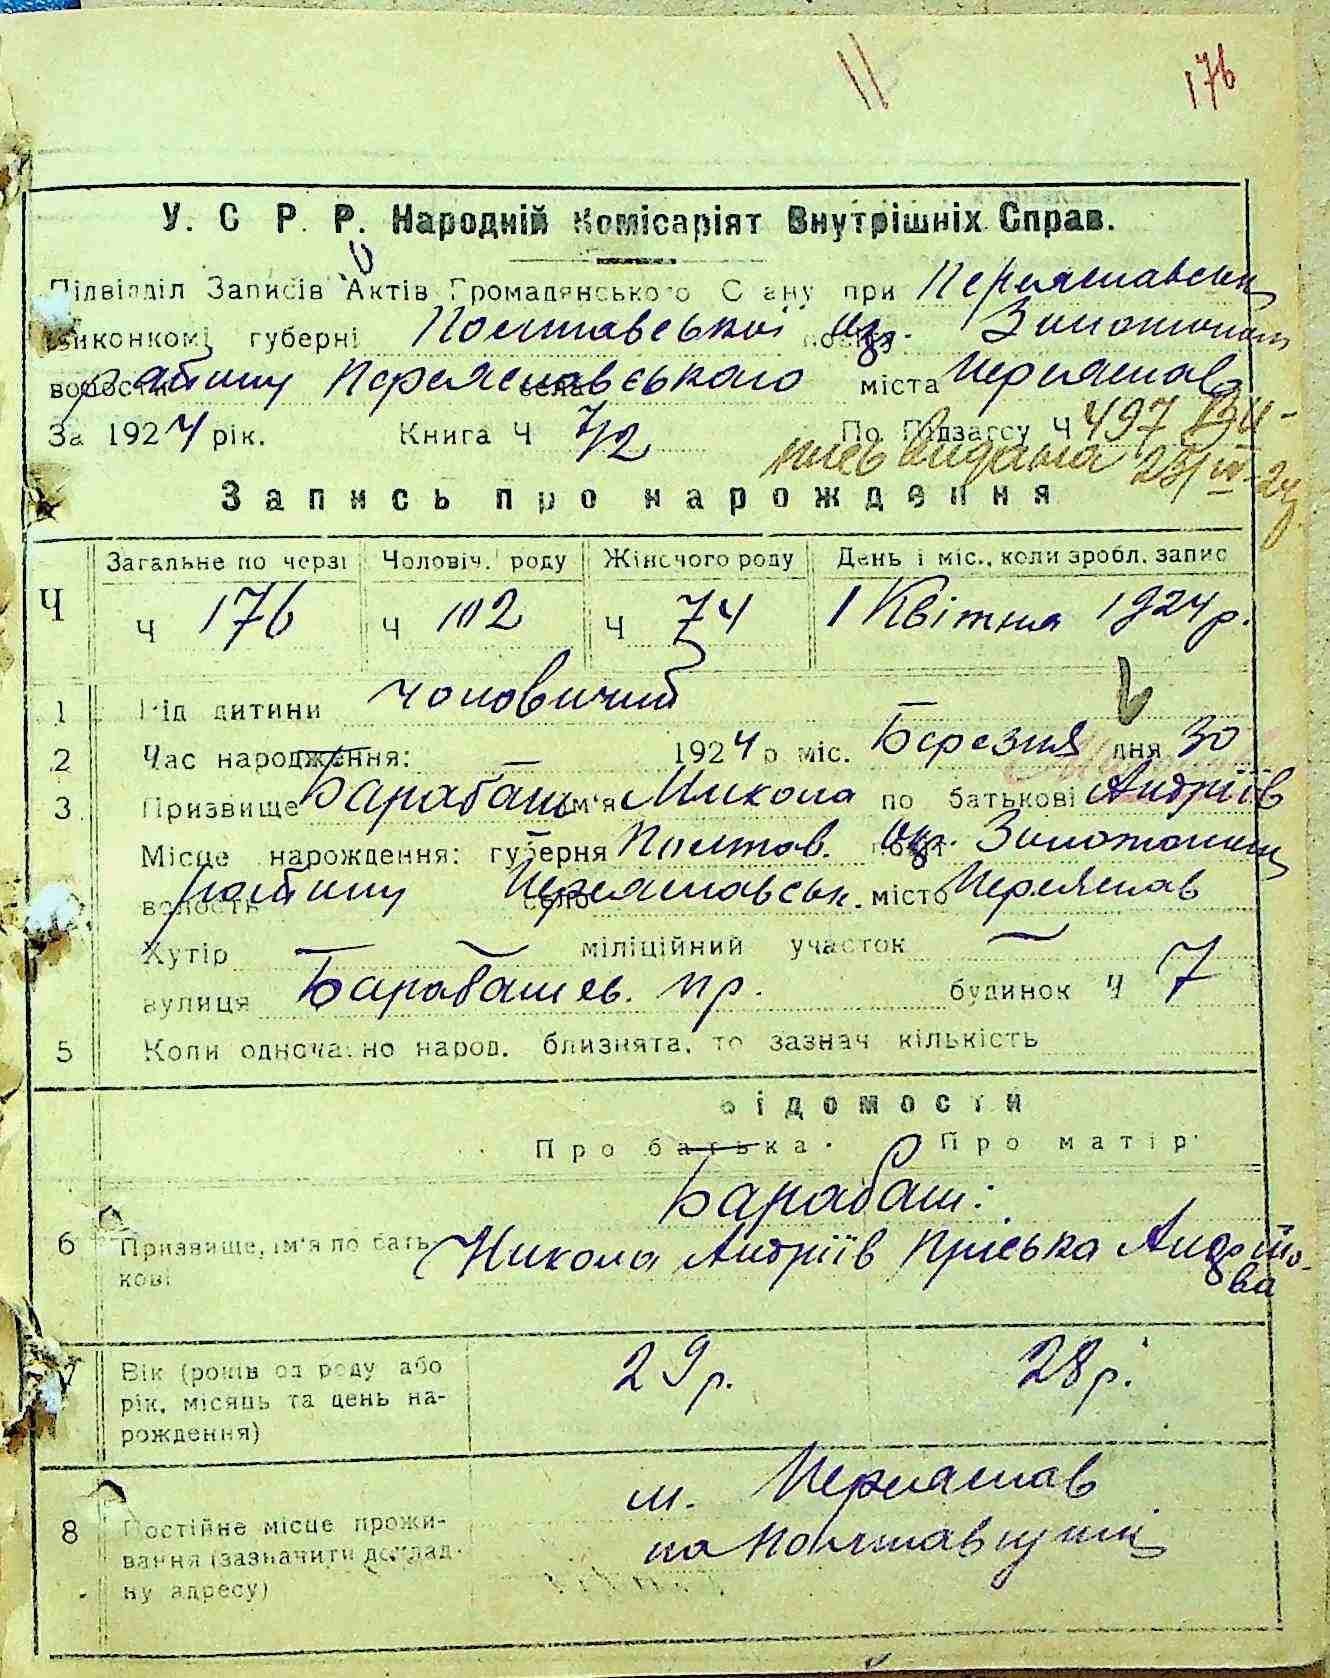 11 176
У. С. Р. Р. Народній Комісаріят Внутрішніх Справ.
Підвідділ Записів Актів Громадянського Стану при Переяславськ
Виконкомі губерні Полтавської окр. Золотонош
волости району Переяславського міста Переяслава
За 1924 рік. Книга Ч 7/2 По Підзагсу Ч 497 Ви-
пись видана 23/IV-24
Запись про народження
Ч Загальне по черзі Чоловіч. роду Жіночого роду День і міс., коли зробл. запис
Ч 176 Ч 102 Ч 74 1 Квітня 1924 р.
1 Рід дитини чоловичий
2 Час народження: 1924 р міс. Березня дня 30
3 Призвище Барабаш ім'я Микола по батькові Андріїв
Місце народження: губерня Полтав. окр. Золотонош
волость району село Переяславськ. місто Переяслав
Хутір — міліційний участок —
вулиця Барабашев. пр. будинок Ч 7
5 Коли одночасно народ. близнята, то зазнач кількість
Відомости
Про батька Про матір
Барабаш:
6 Призвище, ім'я по бать- Микола Андріїв Пріська Андрійо-
кові ва
7 Вік (років од роду або 29 р. 28 р.
рік, місяць та день на-
рождення)
м. Переяслав
8 Постійне місце прожи- на Полтавщині
вання (зазначити доклад-
ну адресу)